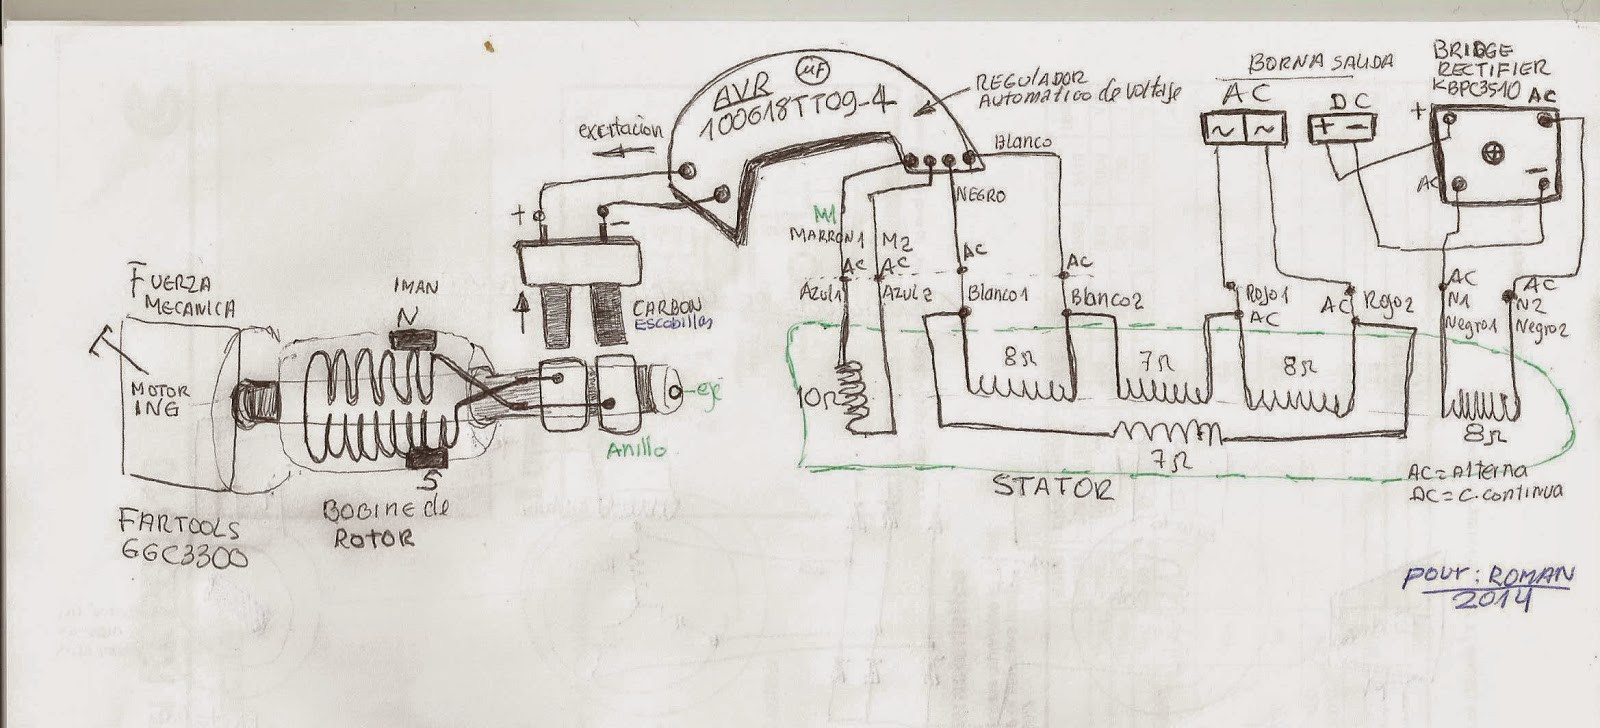 AVR µF
100618TT09-4
REGULADOR
Automatico de voltaje
BORNA SALIDA
AC
~ ~
DC
+ -
BRIDGE
RECTIFIER
KBPC3510 AC
+
AC
-
excitacion
Blanco
NEGRO
+
-
M1
MARRON1
M2
AC
AC
AC
AC
Azul1
Azul2
Blanco1
Blanco2
Rojo1
AC
AC
Rojo2
AC
N1
Negro1
AC
N2
Negro2
FUERZA
MECANICA
IMAN
N
CARBON
Escobillas
MOTOR
ING
eje
Anillo
S
10Ω
8Ω
7Ω
8Ω
7Ω
8Ω
STATOR
AC = Alterna
DC = C. continua
BOBINE de
ROTOR
FARTOOLS
GGC3300
pour : ROMAN
2014